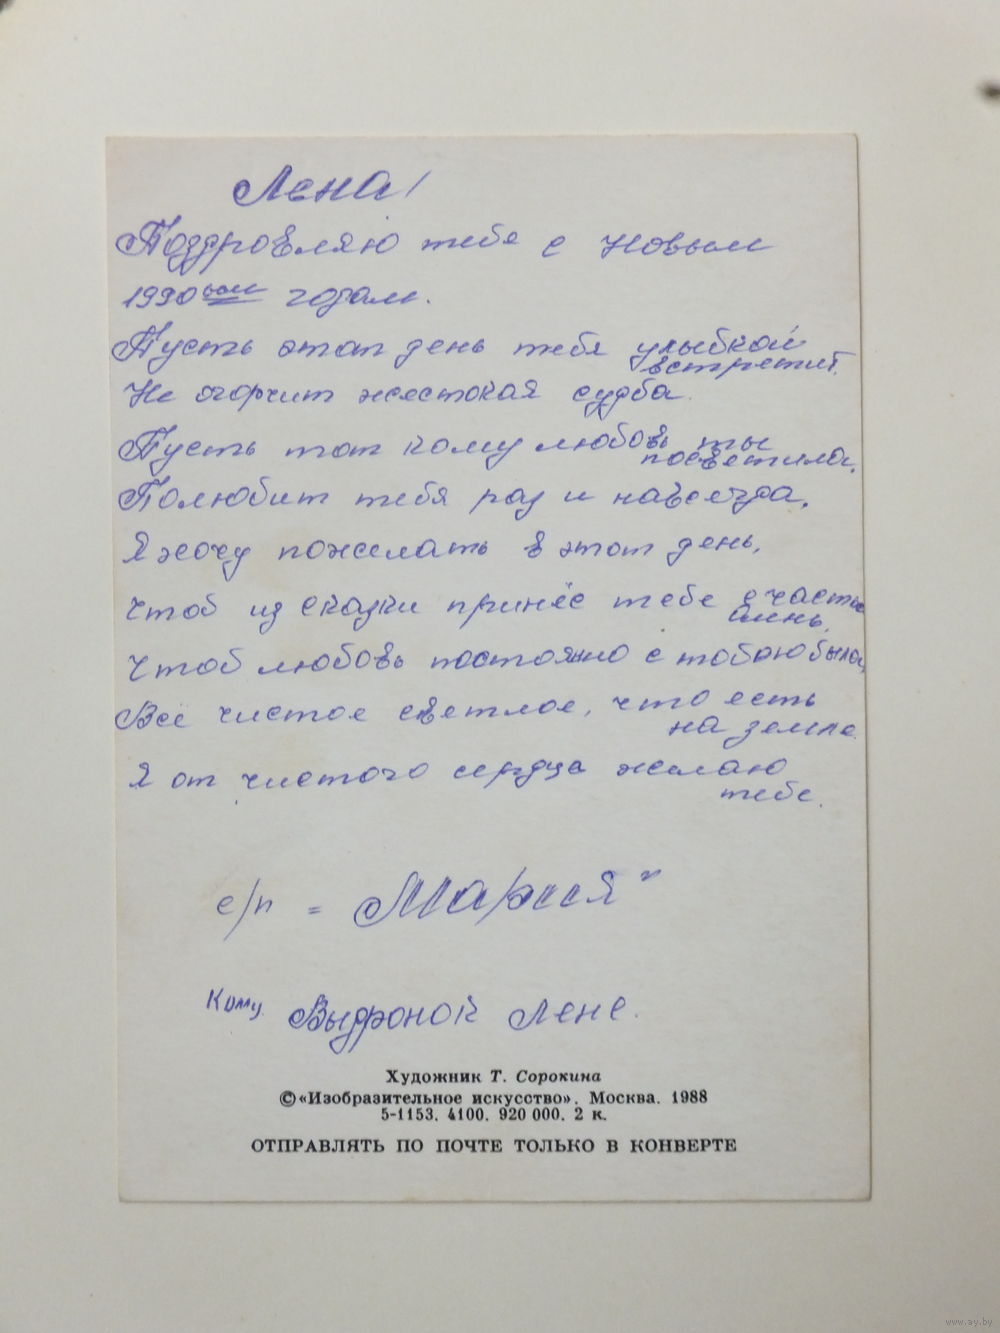 Лена!
Поздровляю тебя с Новым
1990ым годом.
Пусть этот день тебя улыбкой
встретит.
Не огорчит жестокая судба.
Пусть тот кому любовь ты
посветила,
Полюбит тебя раз и навсегда.
Я хочу пожелать в этот день,
Чтоб из сказки принёс тебе счастье
олень.
Чтоб любовь постоянно с тобою была,
Всё чистое светлое, что есть
на земле.
Я от чистого сердца желаю
тебе.
с/п = "Мария"
Кому Выдроной Лене.
Художник Т. Сорокина
©«Изобразительное искусство». Москва. 1988
5-1153. 4100. 920 000. 2 к.
ОТПРАВЛЯТЬ ПО ПОЧТЕ ТОЛЬКО В КОНВЕРТЕ
www.ay.by